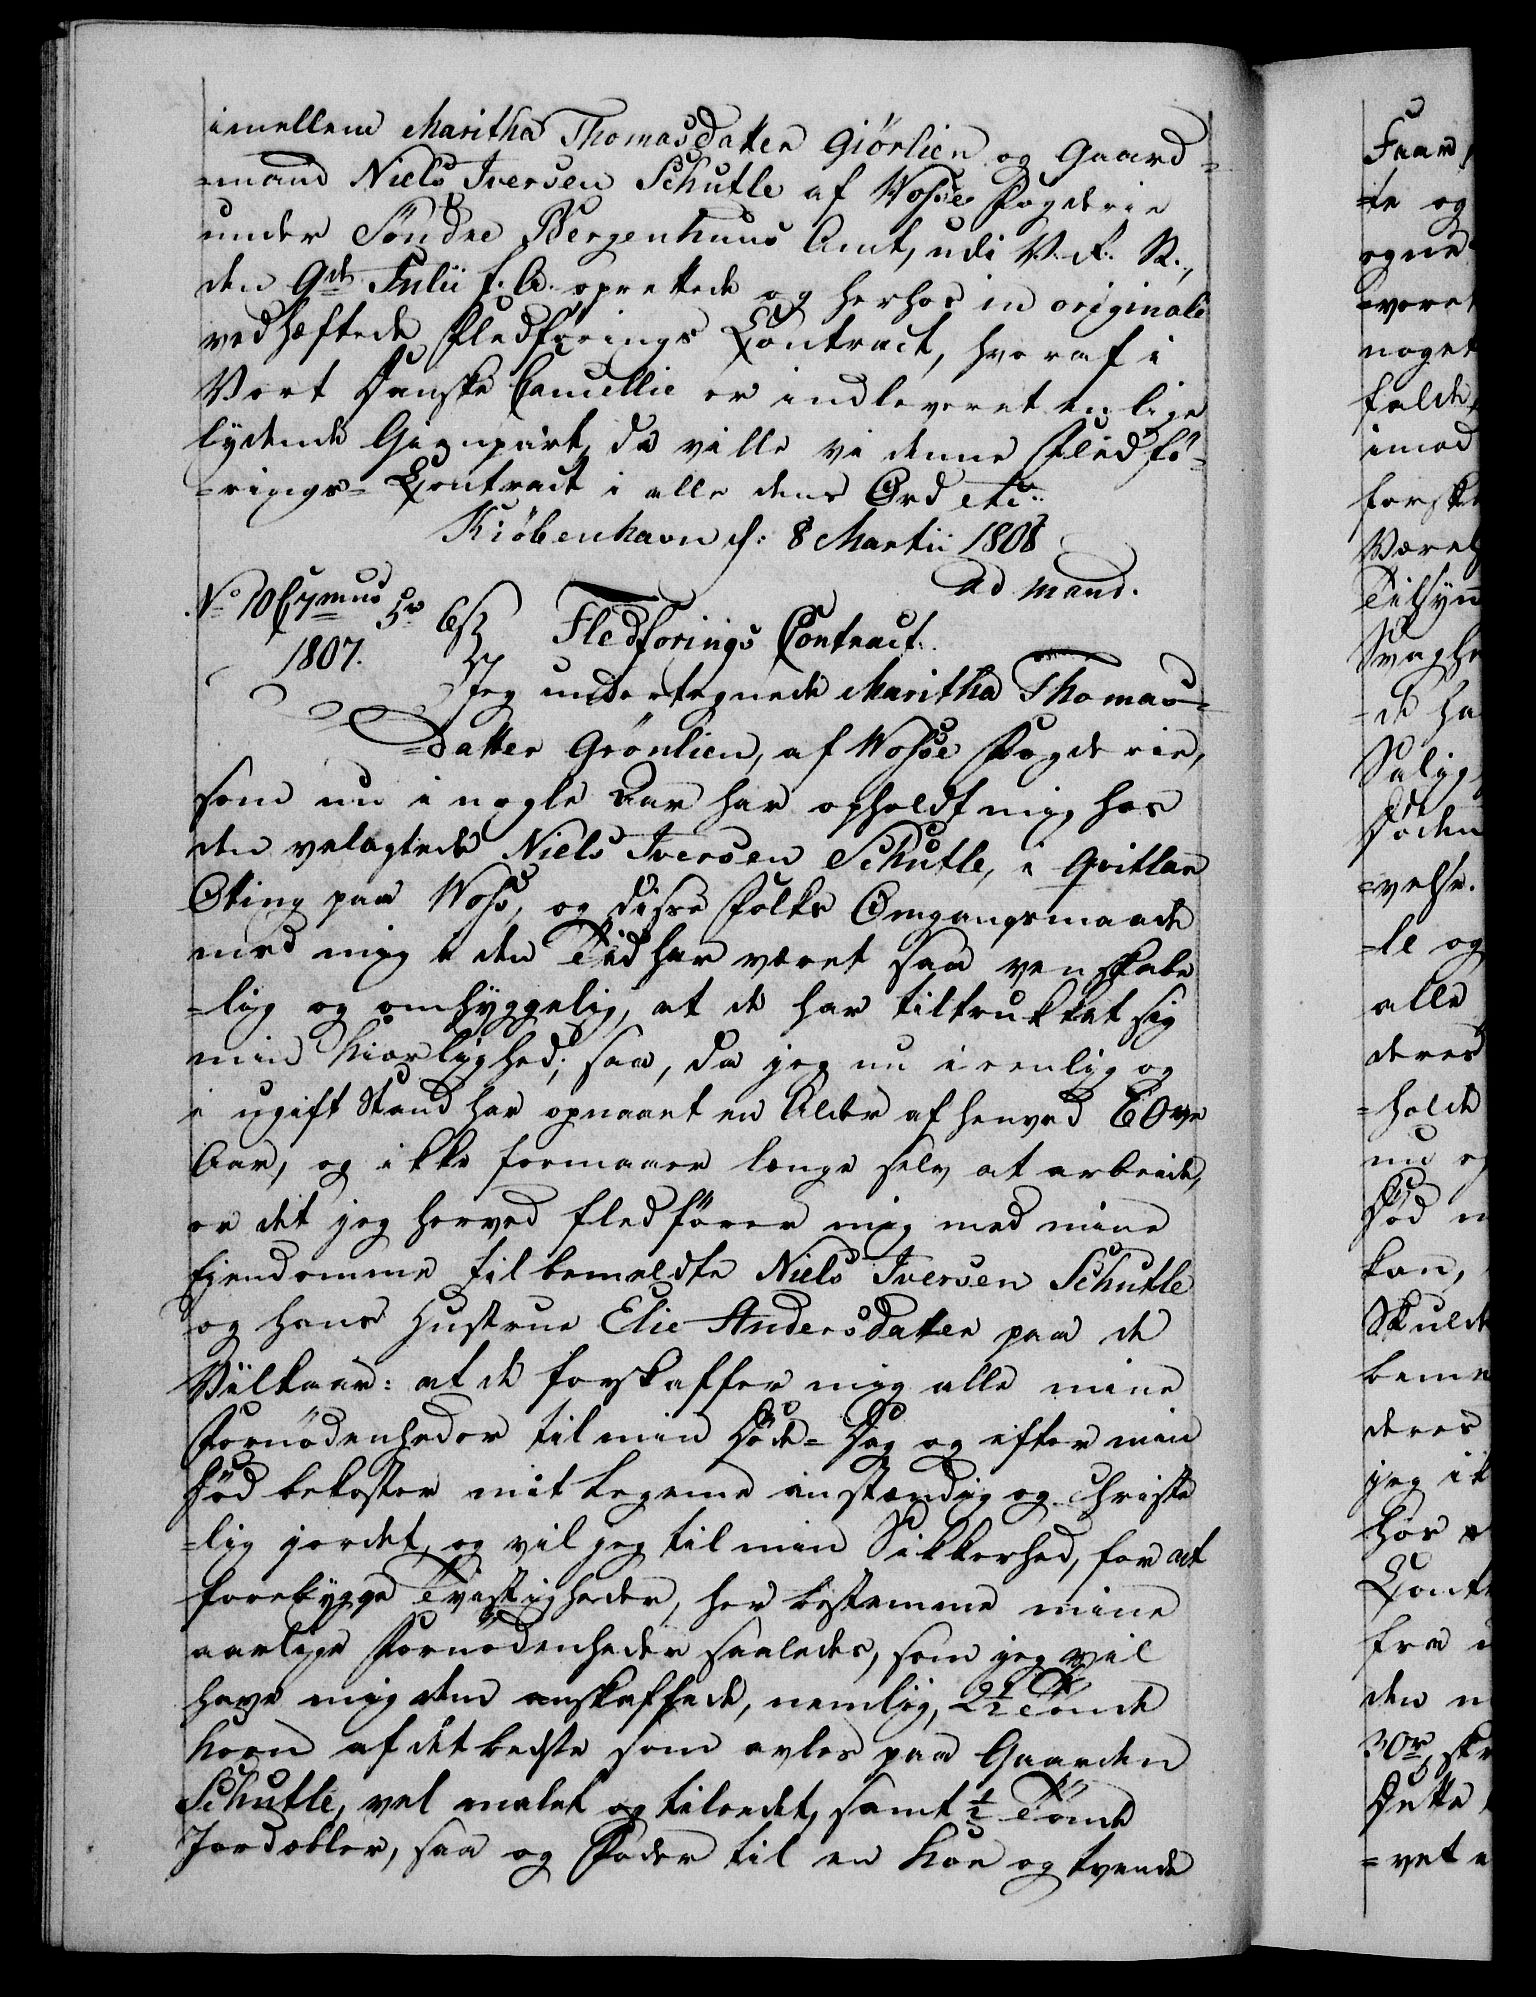 imellem Maritha Thomasdatter Giörlien og Gaard=
=mand Niels Iversen Schutle af Wosse Fogderie
under Söndre Bergenhuus Amt, udi V. R. N.,
den 9de Julii f. A. oprettede og herhos in originali
vedhæftede Fledförings Contract, hvoraf i
Vort Danske Cancellie er indleveret en lige
lydende Gienpart, da ville vi denne Fledfö=
=rings= Contract i alle dens Ord etc:
Kiöbenhavn d: 8 Martii 1808
ad mand.
No 10
1807.
Fledförings Contract.
Jeg undertegnede Maritha Thomas=
=datter Grönlien, af Wosse Fogderie,
som nu i nogle Aar har opholdt mig hos
den velagtede Niels Iversen Schutle, i Qvitlar
Otting paa Woss, og disse Folks Omgangsmaade
med mig i den Tid har været saa venskabe
=lig og omhyggelig, at de har tiltrukket sig
min Kiærlighed; saa, da jeg nu i eenlig og
i ugift Stand har opnaaet en Alder af henved 60ve
Aar, og ikke formaaer længe selv at arbeide,
er det jeg herved fledförer mig med mine
Eiendomme til bemeldte Niels Iversen Schutle
og hans Hustrue Elie Andersdatter paa de
Vilkaar: at de forskaffer mig alle mine
Fornödenheder til min Döde= Dag og efter min
Död bekoster mit Legeme anstændig og Christe
=lig jordet, og vil jeg til min Sikkerhed, for at
forebygge Tvistigheder, her bestemme mine
aarlige Fornödenheder saaledes, som jeg vil
have mig dem anskaffede, nemlig, 2½ Tönde
Korn af det bedste som avles paa Gaarden
Schutle, vel malet og tilredet, samt ½ Tönde
Jordæbler, saa og Foder til en Koe og tvende
Faar,
=te og
noget
imod
alle
deres
=holde
kan,
deres
hos
den